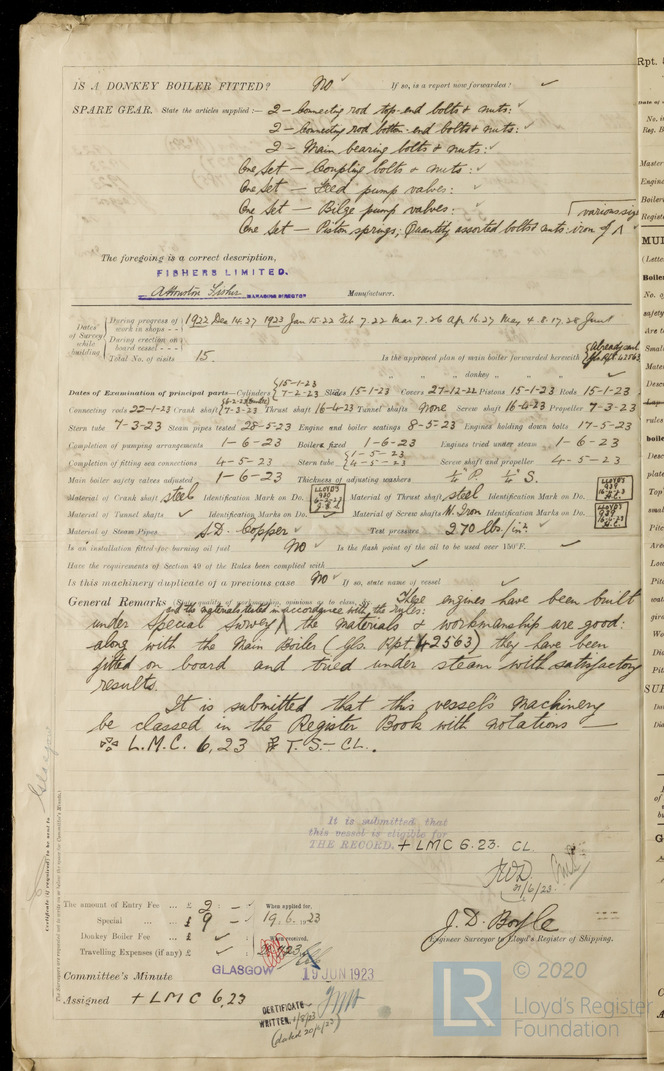 IS A DONKEY BOILER FITTED? No ✓ If so, is a report now forwarded? ✓
SPARE GEAR. State the articles supplied:— 2 – Connecting rod top-end bolts & nuts: ✓
2 – Connecting rod bottom-end bolts & nuts: ✓
2 – Main bearing bolts & nuts: ✓
One Set – Coupling bolts & nuts: ✓
One Set – Feed pump valves: ✓
One Set – Bilge pump valves: ✓
One Set – Piston springs; Quantity assorted bolts & nuts: iron of various
The foregoing is a correct description,
FISHERS LIMITED.
MANAGING DIRECTOR Manufacturer.
Dates of Survey while building
During progress of work in shops - - 1922 Dec 14.27 1923 Jan 15.22 Feb 7.22 Mar 7.26 Apl 16.27 May 4.8.17.28 June 1
During erection on board vessel - - -
Total No. of visits 15. Is the approved plan of main boiler forwarded herewith
" " " donkey " " " ✓
Dates of Examination of principal parts—Cylinders 15-1-23 7-2-23 Slides 15-1-23 Covers 27-12-22 Pistons 15-1-23 Rods 15-1-23
Connecting rods 22-1-23 Crank shaft 7-3-23 Thrust shaft 16-4-23 Tunnel shafts None Screw shaft 16-4-23 Propeller 7-3-23
Stern tube 7-3-23 Steam pipes tested 28-5-23 Engine and boiler seatings 8-5-23 Engines holding down bolts 17-5-23
Completion of pumping arrangements 1-6-23 Boilers fixed 1-6-23 Engines tried under steam 1-6-23
Completion of fitting sea connections 4-5-23 Stern tube 1-5-23 4-5-23 Screw shaft and propeller 4-5-23
Main boiler safety valves adjusted 1-6-23 Thickness of adjusting washers ¼" P. ¼" S.
Material of Crank shaft steel Identification Mark on Do. LLOYDS Material of Thrust shaft steel Identification Mark on Do. LLOYDS
Material of Tunnel shafts ✓ Identification Marks on Do. ✓ Material of Screw shafts W. Iron Identification Marks on Do. LLOYDS
Material of Steam Pipes S.D. Copper ✓ Test pressure 270 lbs/in². ✓
Is an installation fitted for burning oil fuel No Is the flash point of the oil to be used over 150°F. ✓
Have the requirements of Section 49 of the Rules been complied with ✓
Is this machinery duplicate of a previous case No ✓ If so, state name of vessel ✓
General Remarks (State quality of workmanship, opinions as to class, &c. These engines have been built
and the materials tested in accordance with the Rules:
under Special Survey, the materials & workmanship are good:
along with the Main Boiler (Gls. Rpt. 42563) they have been
fitted on board and tried under steam with satisfactory
results.
It is submitted that this vessel's machinery
be classed in the Register Book with notations —
L.M.C. 6,23 T.S.– CL.
It is submitted that
this vessel is eligible for
THE RECORD. + LMC 6.23. CL.
21/6/23
The amount of Entry Fee ... £ 2 : – : When applied for,
Special ... ... £ 9 : – : 19.6.1923
Donkey Boiler Fee ... £ ✓ : When received,
Travelling Expenses (if any) £ ✓ :
J. D. Boyle
Engineer Surveyor to Lloyd's Register of Shipping.
Committee's Minute GLASGOW 19 JUN 1923
Assigned + LMC 6,23
CERTIFICATE WRITTEN.
© 2020
LR Lloyd's Register
Foundation
Glasgow
Certificate (if required) to be sent to